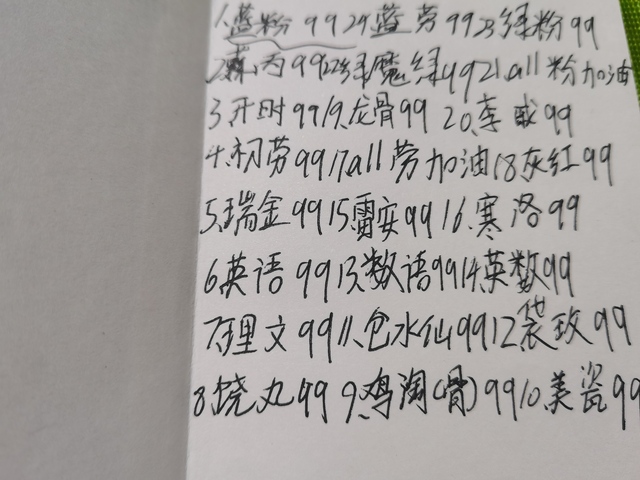 1.蓝粉9924蓝劳9923绿粉99
2.丙9922绿魔绿9921all粉加油
3.开时9919.龙骨99 20.李威99
4.初劳9917all劳加油18灰红99
5.瑞金9915.雷安9916.寒洛99
6.英语9913.数语9914.英数99
7.理文9911.仓水仙9912袋玫99
8.烧丸999.鸡淘(骨)9910.美瓷99